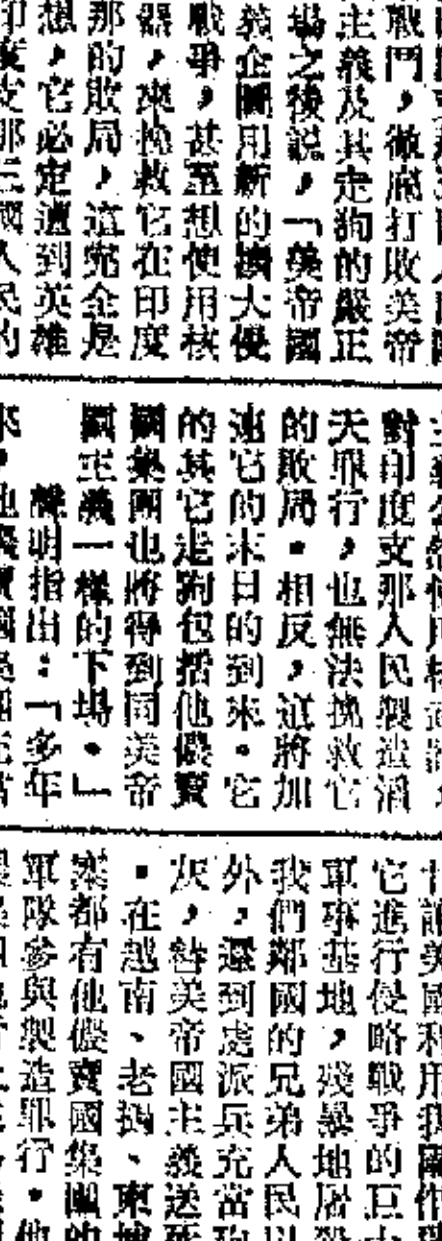 戰鬥，徹底打敗美帝
主義及其走狗的嚴正
場之後説，「美帝國
義企圖用新的擴大侵
戰爭，甚至想使用核
器，來挽救它在印度
那的敗局，這完全是
想，它必定遭到英雄
印度支那三國人民的
對印度支那人民製造滔
天罪行，也無法挽救它
的敗局。相反，這將加
速它的末日的到來。它
的其它走狗包括他儂賣
國集團也將得到同美帝
國主義一樣的下場。」
聲明指出：「多年
來，他儂賣國集團
它進行侵略戰爭的巨大
軍事基地，殘暴地屠殺
我們鄰國的兄弟人民以
外，還到處派兵充當砲
灰，替美帝國主義送死
。在越南、老撾、柬埔
寨都有他儂賣國集團的
軍隊參與製造罪行。他